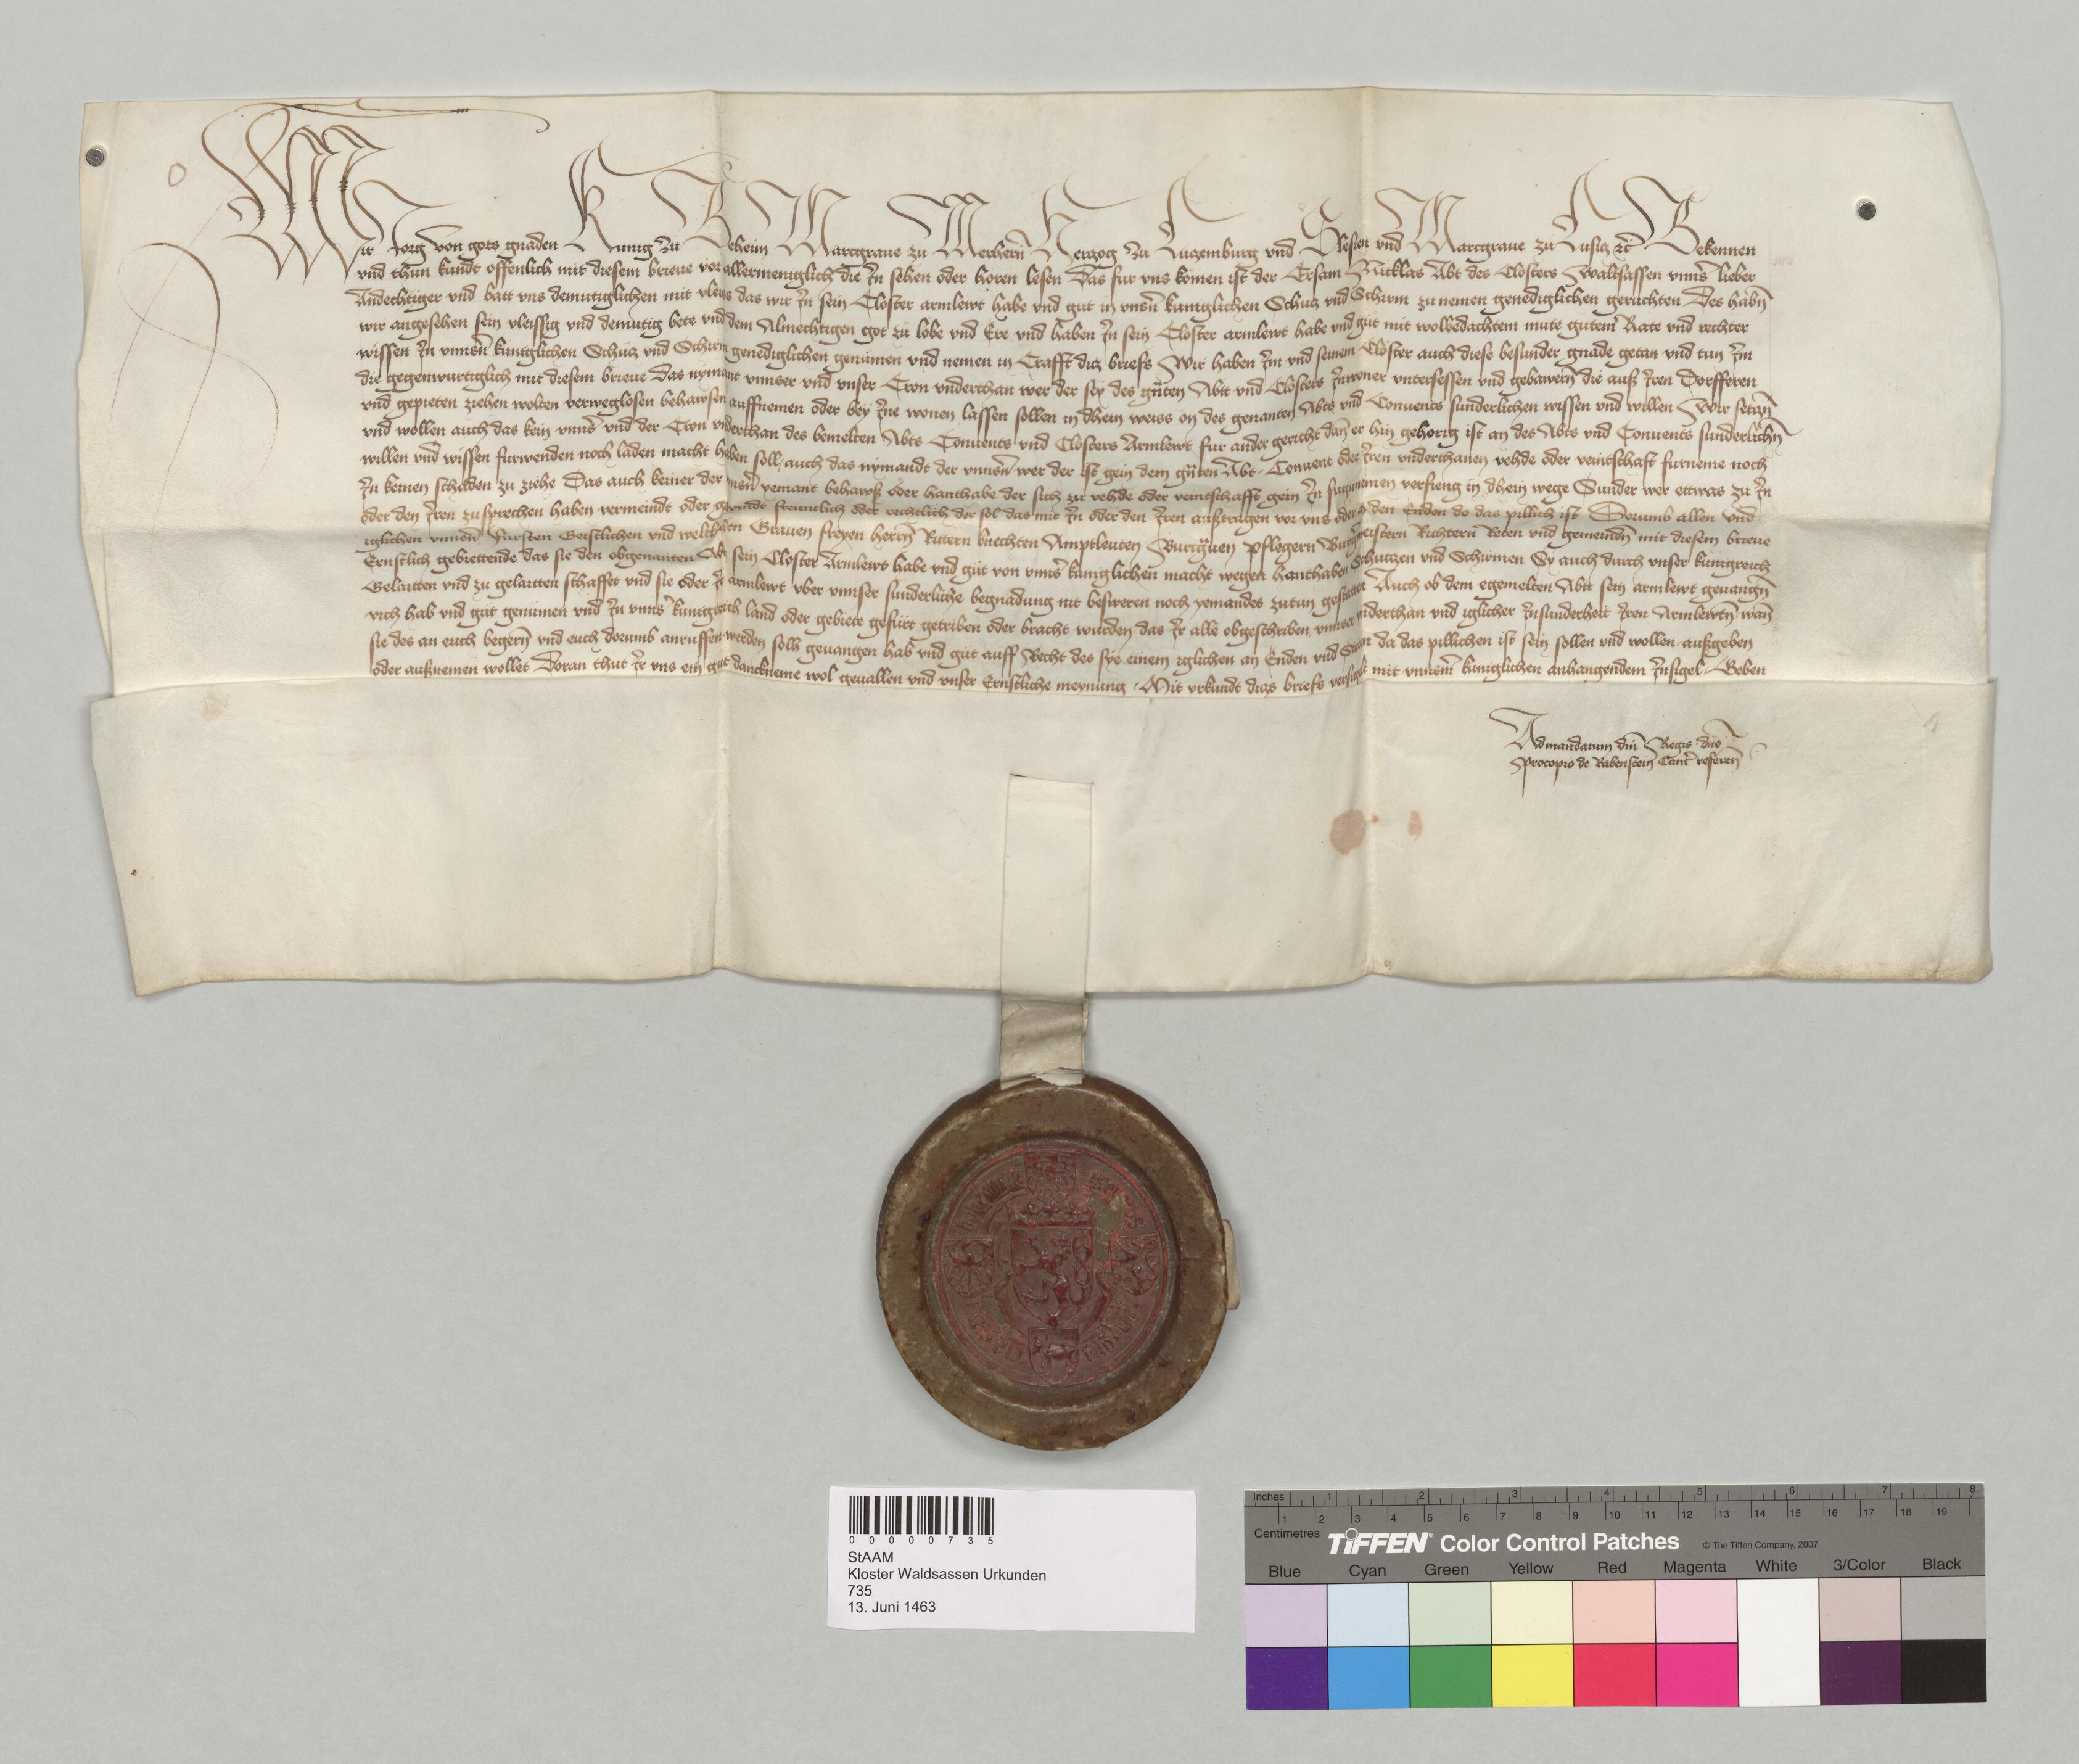 Wir Jorg von gots gnaden Kunig zu Beheim Marcgraue zu Merhern̄ Herzog zu Luczemburg vnd Slesien vnd Marcgraue zu Lusicz ꝛc̄ Bekennen
vnd thun kundt offenlich mit diesem brieue vor allermeniglich die In sehen oder horen lesen Das fur vns komen ist der Ersam Nicklas Abt des Closters Waltsassen vnn̄s lieber
Andechtiger vnd batt vns demutiglichen mit vleis das wir In sein Closter armlewt habe vnd gut in vnsn̄ kuniglichen Schucz vnd Schirm zu nemen genediglichen geruchten Des habn̄
wir angesehen sein vleissig vnd demutig bete vnd dem Almechtigen got zu lobe vnd Ere vnd haben In sein Closter armlewt habe vnd gut mit wolbedachtem mute gutem Rate vnd rechter
wissen In vnnsn̄ kuniglichen Schucz vnd Schirm genediglichen genumen vnd nemen in Crafft dicz briefs Wir haben Im vnd seinem Closter auch diese besunder gnade getan vnd tun Im
die gegenwurtiglich mit diesem brieue Das nymant vnnser vnd vnser Cron vnderthan wer der sey des gn̄ten Abt vnd Closters Inwoner vntersessen vnd gebawern̄ die auß Iren Dorfferen
vnd gepieten ziehen wolten verweglosen behawsen auffnemen oder bey Ine wonen lassen sollen in dhein weiss on des genanten Abts vnd Conuents sunderlichen wissen vnd willen Wir setzn̄
vnd wollen auch das kein vnns̄ vnd der Cron vnderthan des bemelten Abts Conuents vnd Closters Armlewt fur ander gericht dan̄ er hin gehorig ist an des Abts vnd Conuents sunderlichn̄
willen vnd wissen furwenden noch laden macht haben soll, auch das nymandt der vnnsn̄ wer der ist gein dem gn̄ten Abt Conuent oder Iren vnderthanen vehde oder veintschaft furneme noch
In keinen schaden zu ziehe Das auch keiner der vnsn̄ yemant behawß oder hanthabe der sich zu vehde oder veintschafft gein In furzunemen verfieng in dhein wege Sunder wer ettwas zu In
oder den Iren zusprechen haben vermeindt oder gewundt freuntlich oder rechtlich der sol das mit In oder den Iren außtragen vor vns oder an den Enden do das pillich ist Dorumb allen vnd
iglichen vnnsn̄ Fursten Geistlichen vnd weltlichen Grauen freyen herrn̄ Rittern knechten Amptleuten Burcgrauen Pflegern Burgermeistern Richtern̄ Reten vnd gemeindn̄ mit diesem brieue
Ernstlich gebiettende das sie den obgenanten Abt sein Closter Armlewt habe vnd gut von vnns̄ kuniglichen macht wegen hanthaben Schutzen vnd Schirmen Sy auch durch vnser kunigreich
Gelaitten vnd zu gelaitten schaffet vnd sie oder Ir armlewt vber vnnser sunderliche begnadung nit besweren noch yemandes zutun gestattet Auch ob dem egemelten Abt sein armlewt geuangn̄
vich hab vnd gut genumen vnd In vnns̄ kunigreich land oder gebiete gefurt getriben oder bracht wurden das Ir alle obgeschriben vnnser vnderthan vnd iglicher Insunderheit Iren Armlewtn̄ wan̄
sie des an euch begern̄ vnd euch dorumb anruffen werden solh geuangen hab vnd gut auff Recht des sye einem iglichen an Enden vnd Steten da das pillichen ist sein sollen vnd wollen außgeben
oder außnemen wollet Doran thut Ir vns ein gut danckneme wol geuallen vnd vnser Ernstliche meynung Mit vrkundt dicz briefs versigelt mit vnnserm kuniglichen anhangendem Insigel Geben
Admandatum dn̄i Regis dn̄o
Procopio de Rabenstein Canc̄ referen̄
00000735
StAAM
Kloster Waldsassen Urkunden
735
13. Juni 1463
Inches 1 2 3 4 5 6 7 8
1 2 3 4 5 6 7 8 9 10 11 12 13 14 15 16 17 18 19
Centimetres
TIFFEN® Color Control Patches © The Tiffen Company, 2007
Blue Cyan Green Yellow Red Magenta White 3/Color Black